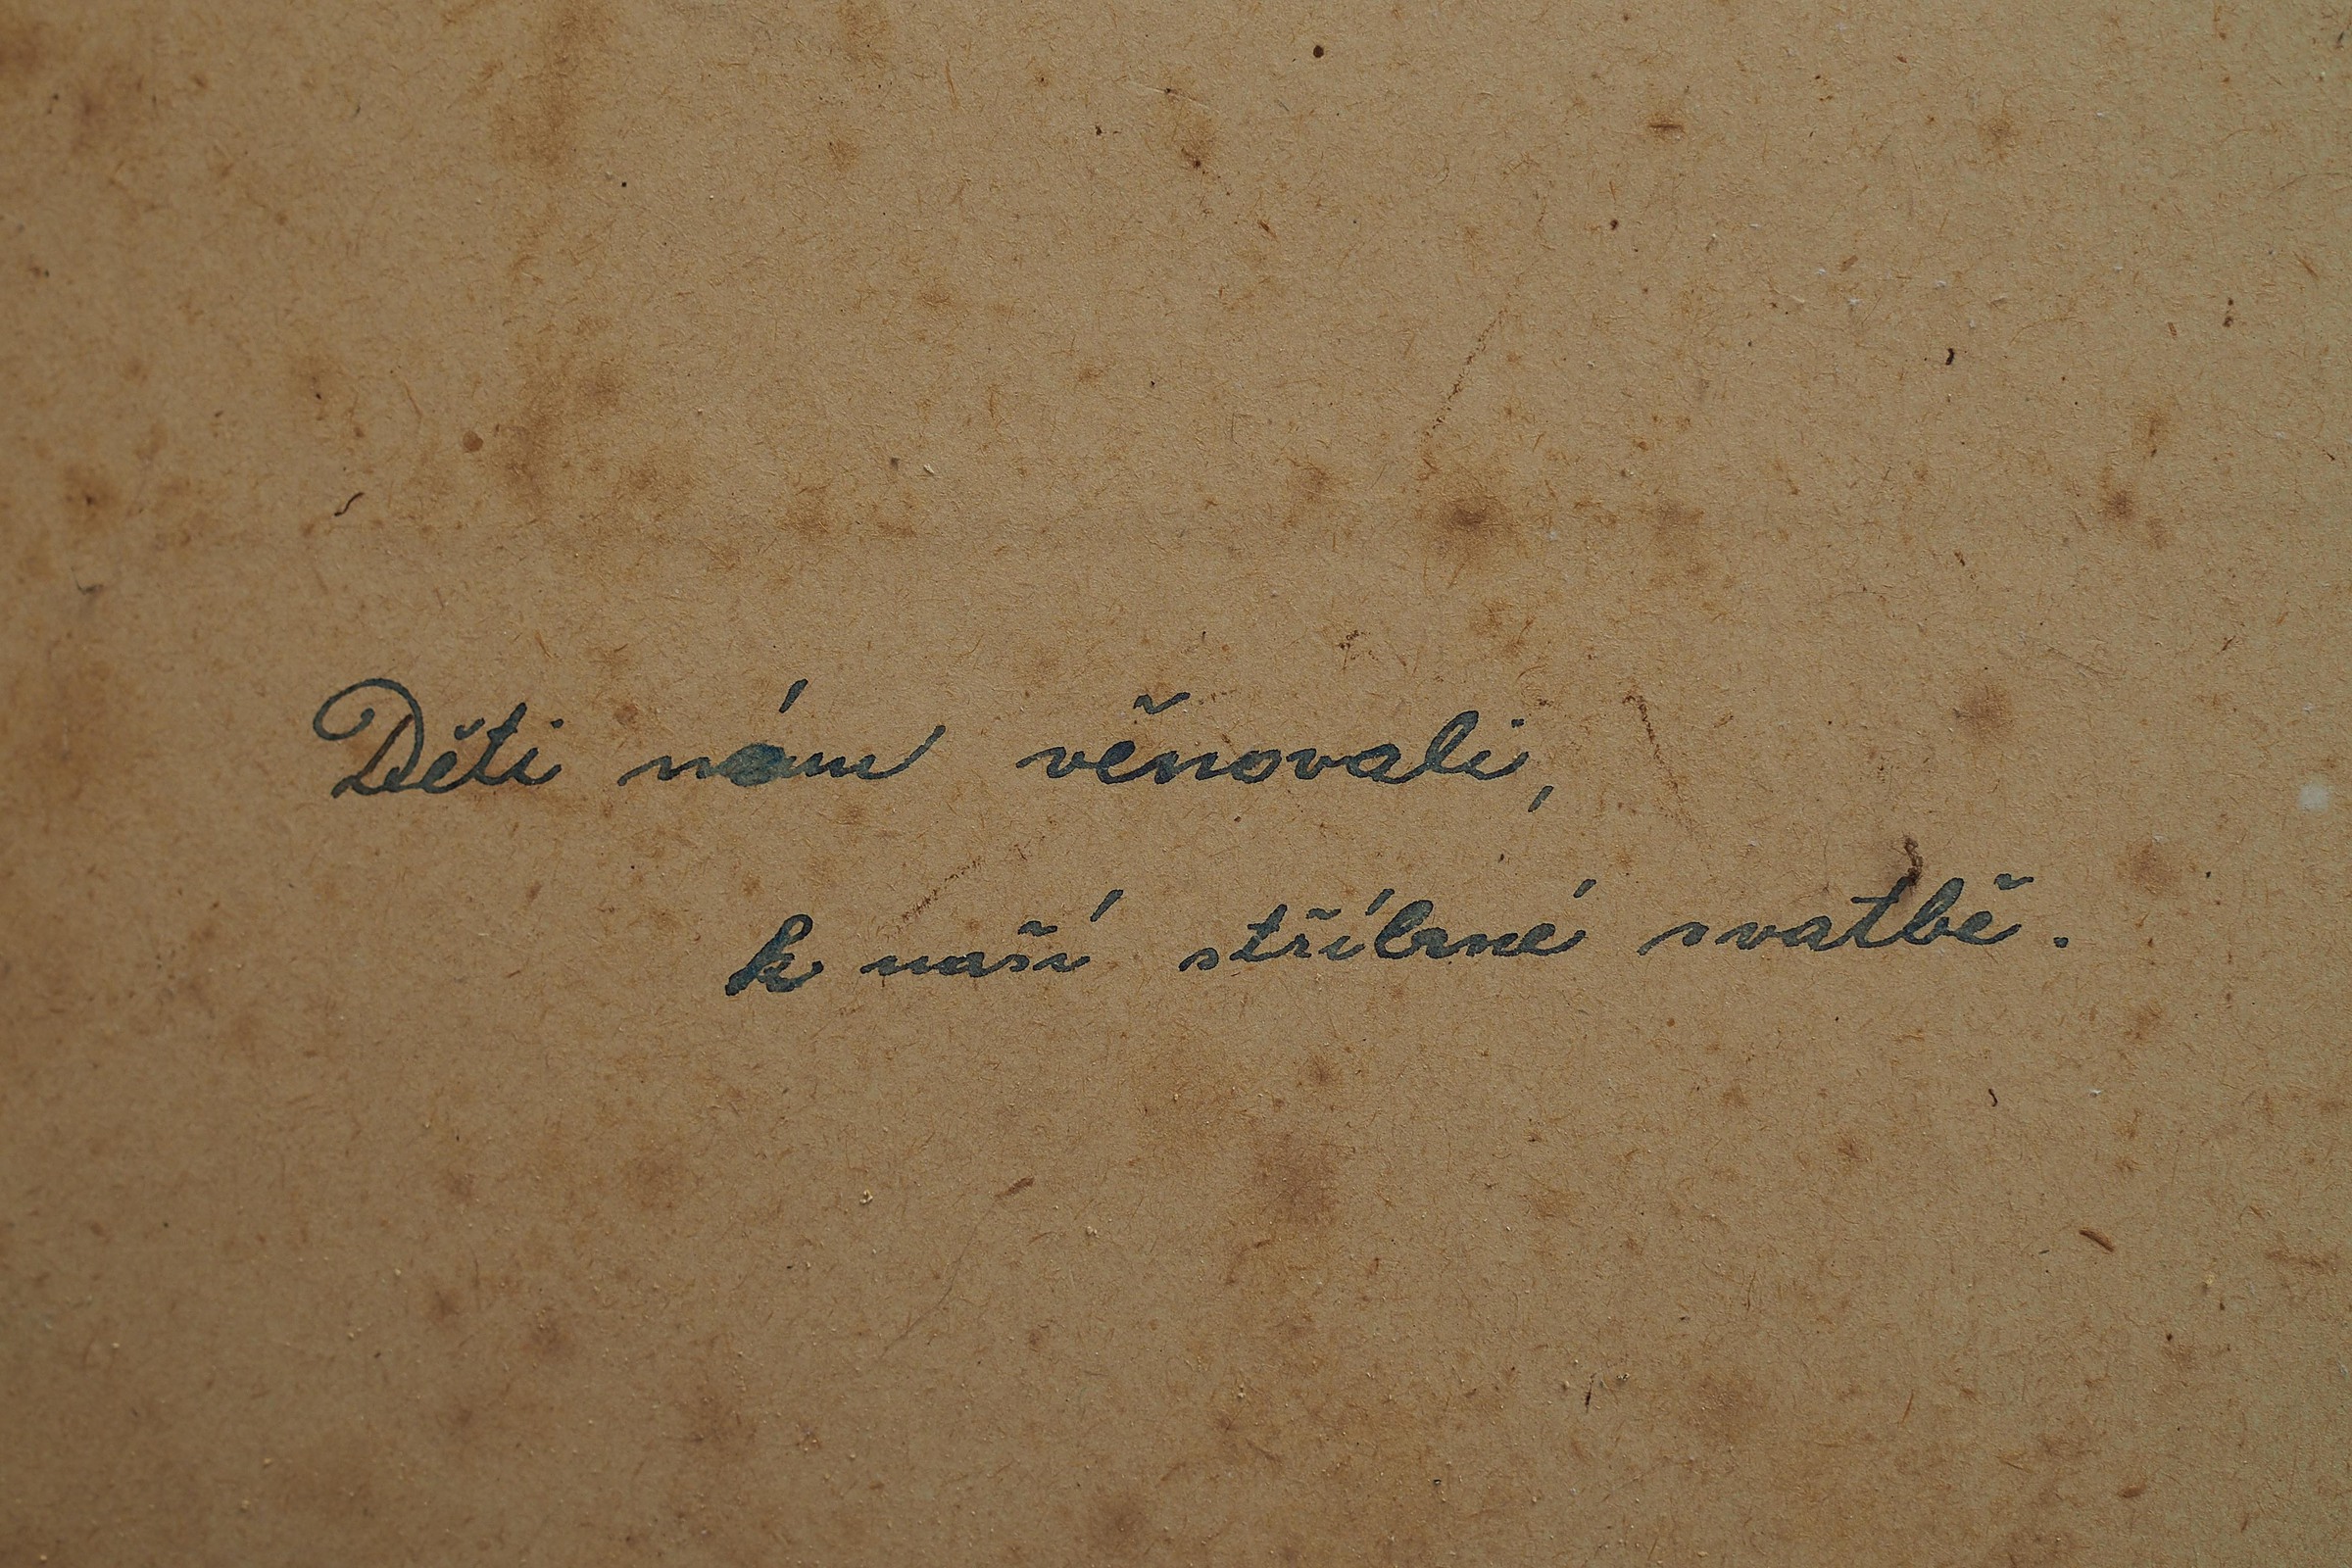 Děti nám věnovali,
k naší stříbrné svatbě.